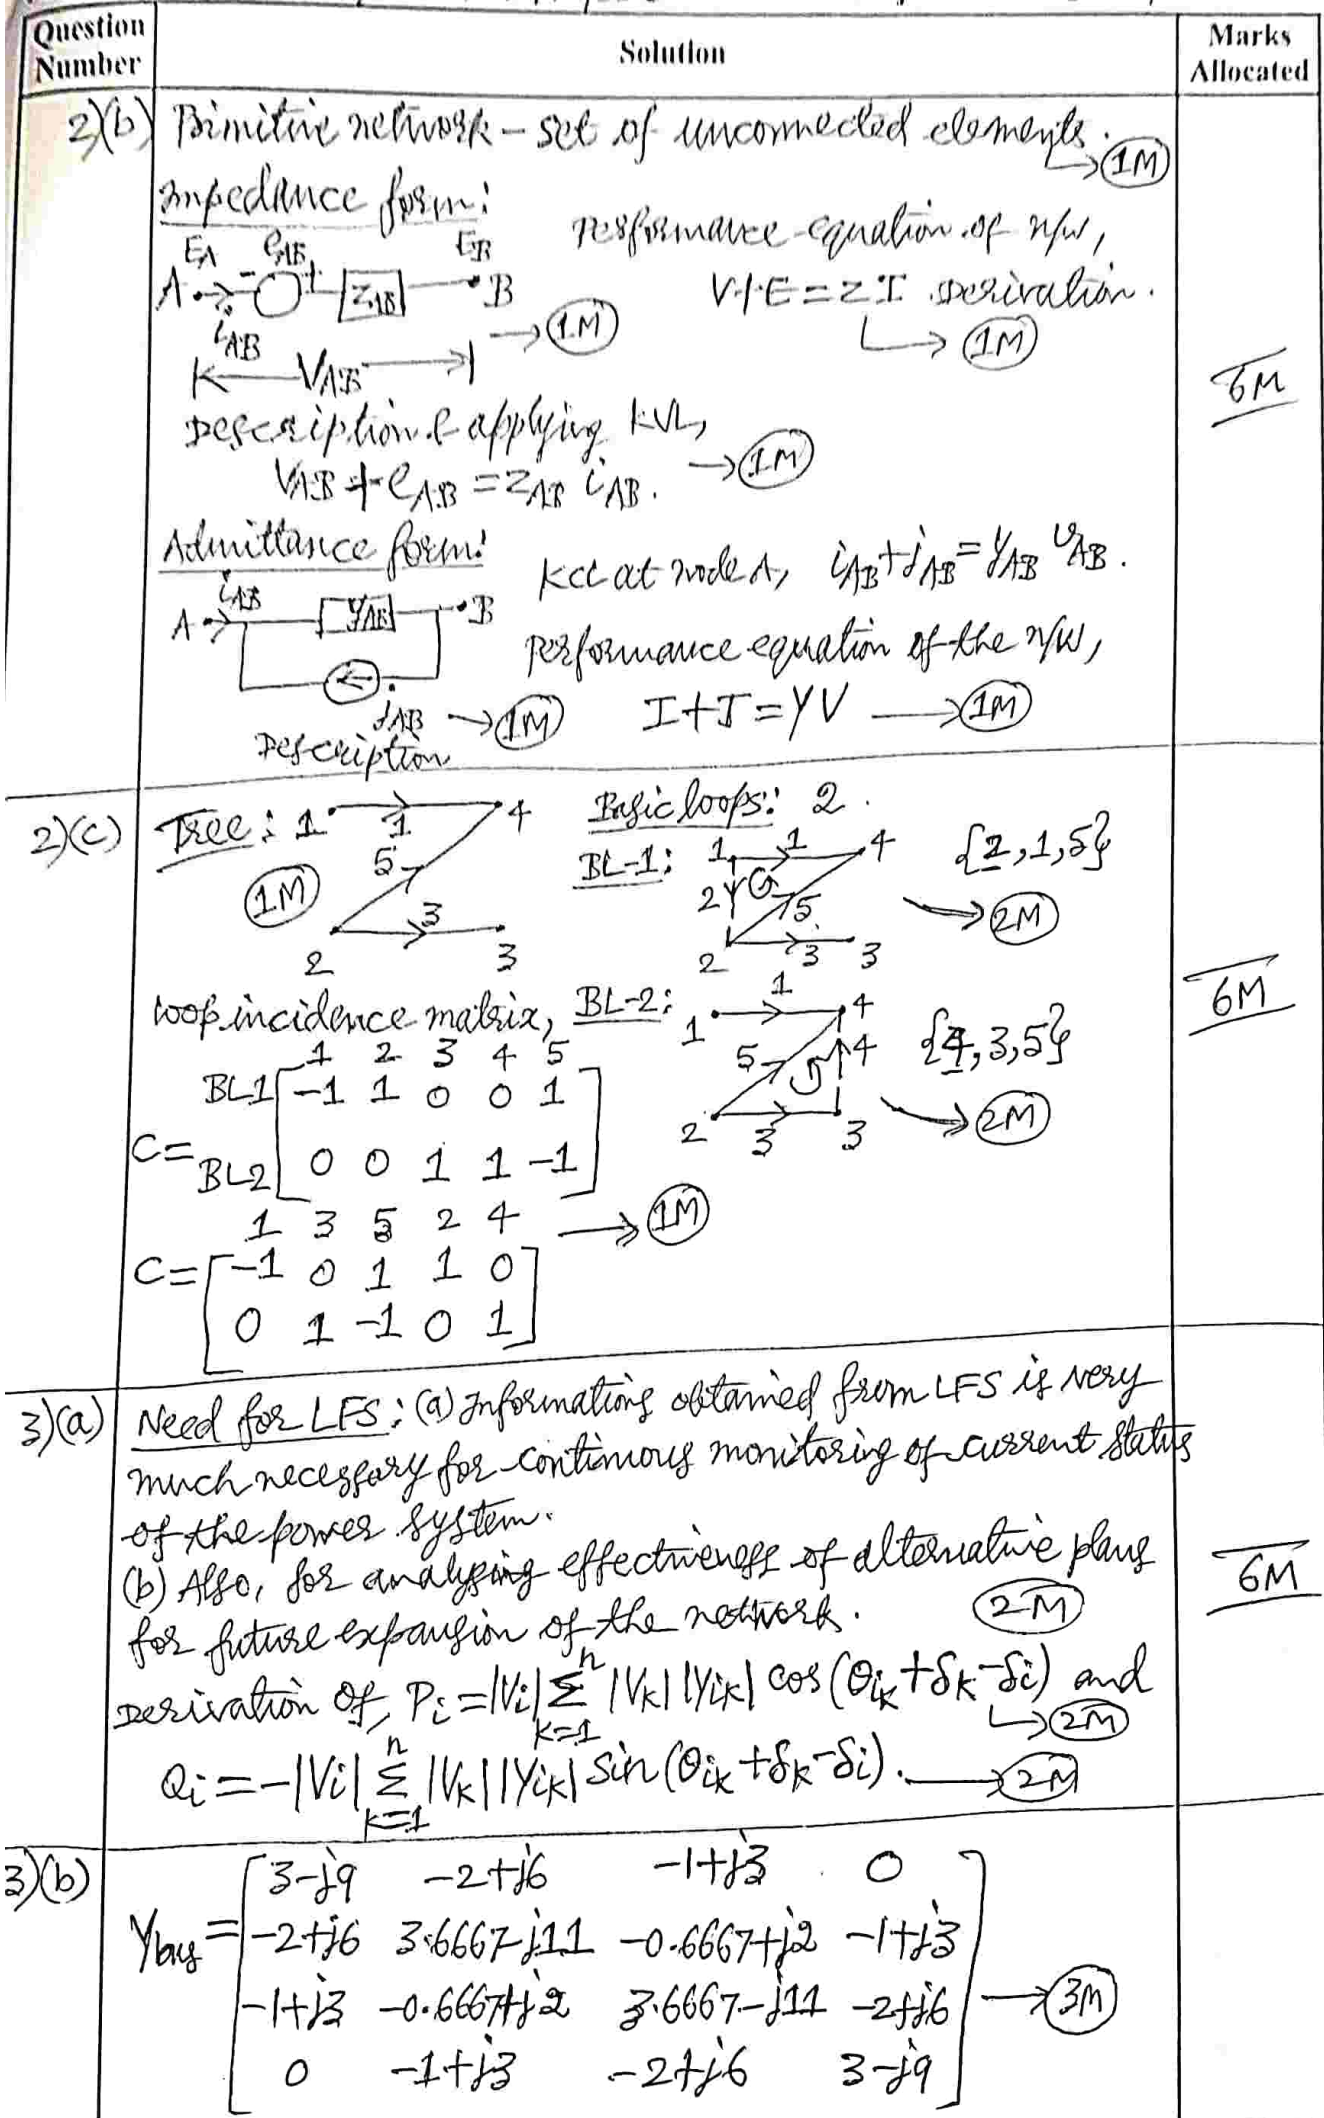 Question Number
Solution
Marks Allocated
2)(b) Primitive network – set of unconnected elements. → (1M)
Impedance form:
EA eAB EB
A - + ZAB B
iAB → (1M)
VAB
Performance equation of n/w,
V+E=ZI derivation.
→ (1M)
6M
Description & applying KVL,
VAB + eAB = ZAB iAB. → (1M)
Admittance form:
KCL at node A, iAB + jAB = yAB vAB.
iAB
A yAB B
jAB → (1M)
Description
Performance equation of the n/w,
I+J=YV → (1M)
2)(c) Tree: 1 1 4
5
(1M)
3
2 3
Basic loops: 2.
BL-1: 1 1 4 {2,1,5}
2 5 → (2M)
2 3 3
6M
Loop incidence matrix, BL-2: 1 1 4 {4,3,5}
5 4 → (2M)
2 3 3
1 2 3 4 5
BL1 [ -1 1 0 0 1
C=
BL2 0 0 1 1 -1 ]
1 3 5 2 4 → (1M)
C= [ -1 0 1 1 0
0 1 -1 0 1 ]
3)(a) Need for LFS: (a) Informations obtained from LFS is very
much necessary for continuous monitoring of current status
of the power system.
(b) Also, for analysing effectiveness of alternative plans
for future expansion of the network. (2M)
6M
Derivation of, Pi = |Vi| Σ n k=1 |Vk| |Yik| cos (θik + δk - δi) and
→ (2M)
Qi = -|Vi| Σ n k=1 |Vk| |Yik| sin (θik + δk - δi). → (2M)
3)(b)
Ybus = [ 3-j9 -2+j6 -1+j3 0
-2+j6 3.6667-j11 -0.6667+j2 -1+j3
-1+j3 -0.6667+j2 3.6667-j11 -2+j6 → (3M)
0 -1+j3 -2+j6 3-j9 ]